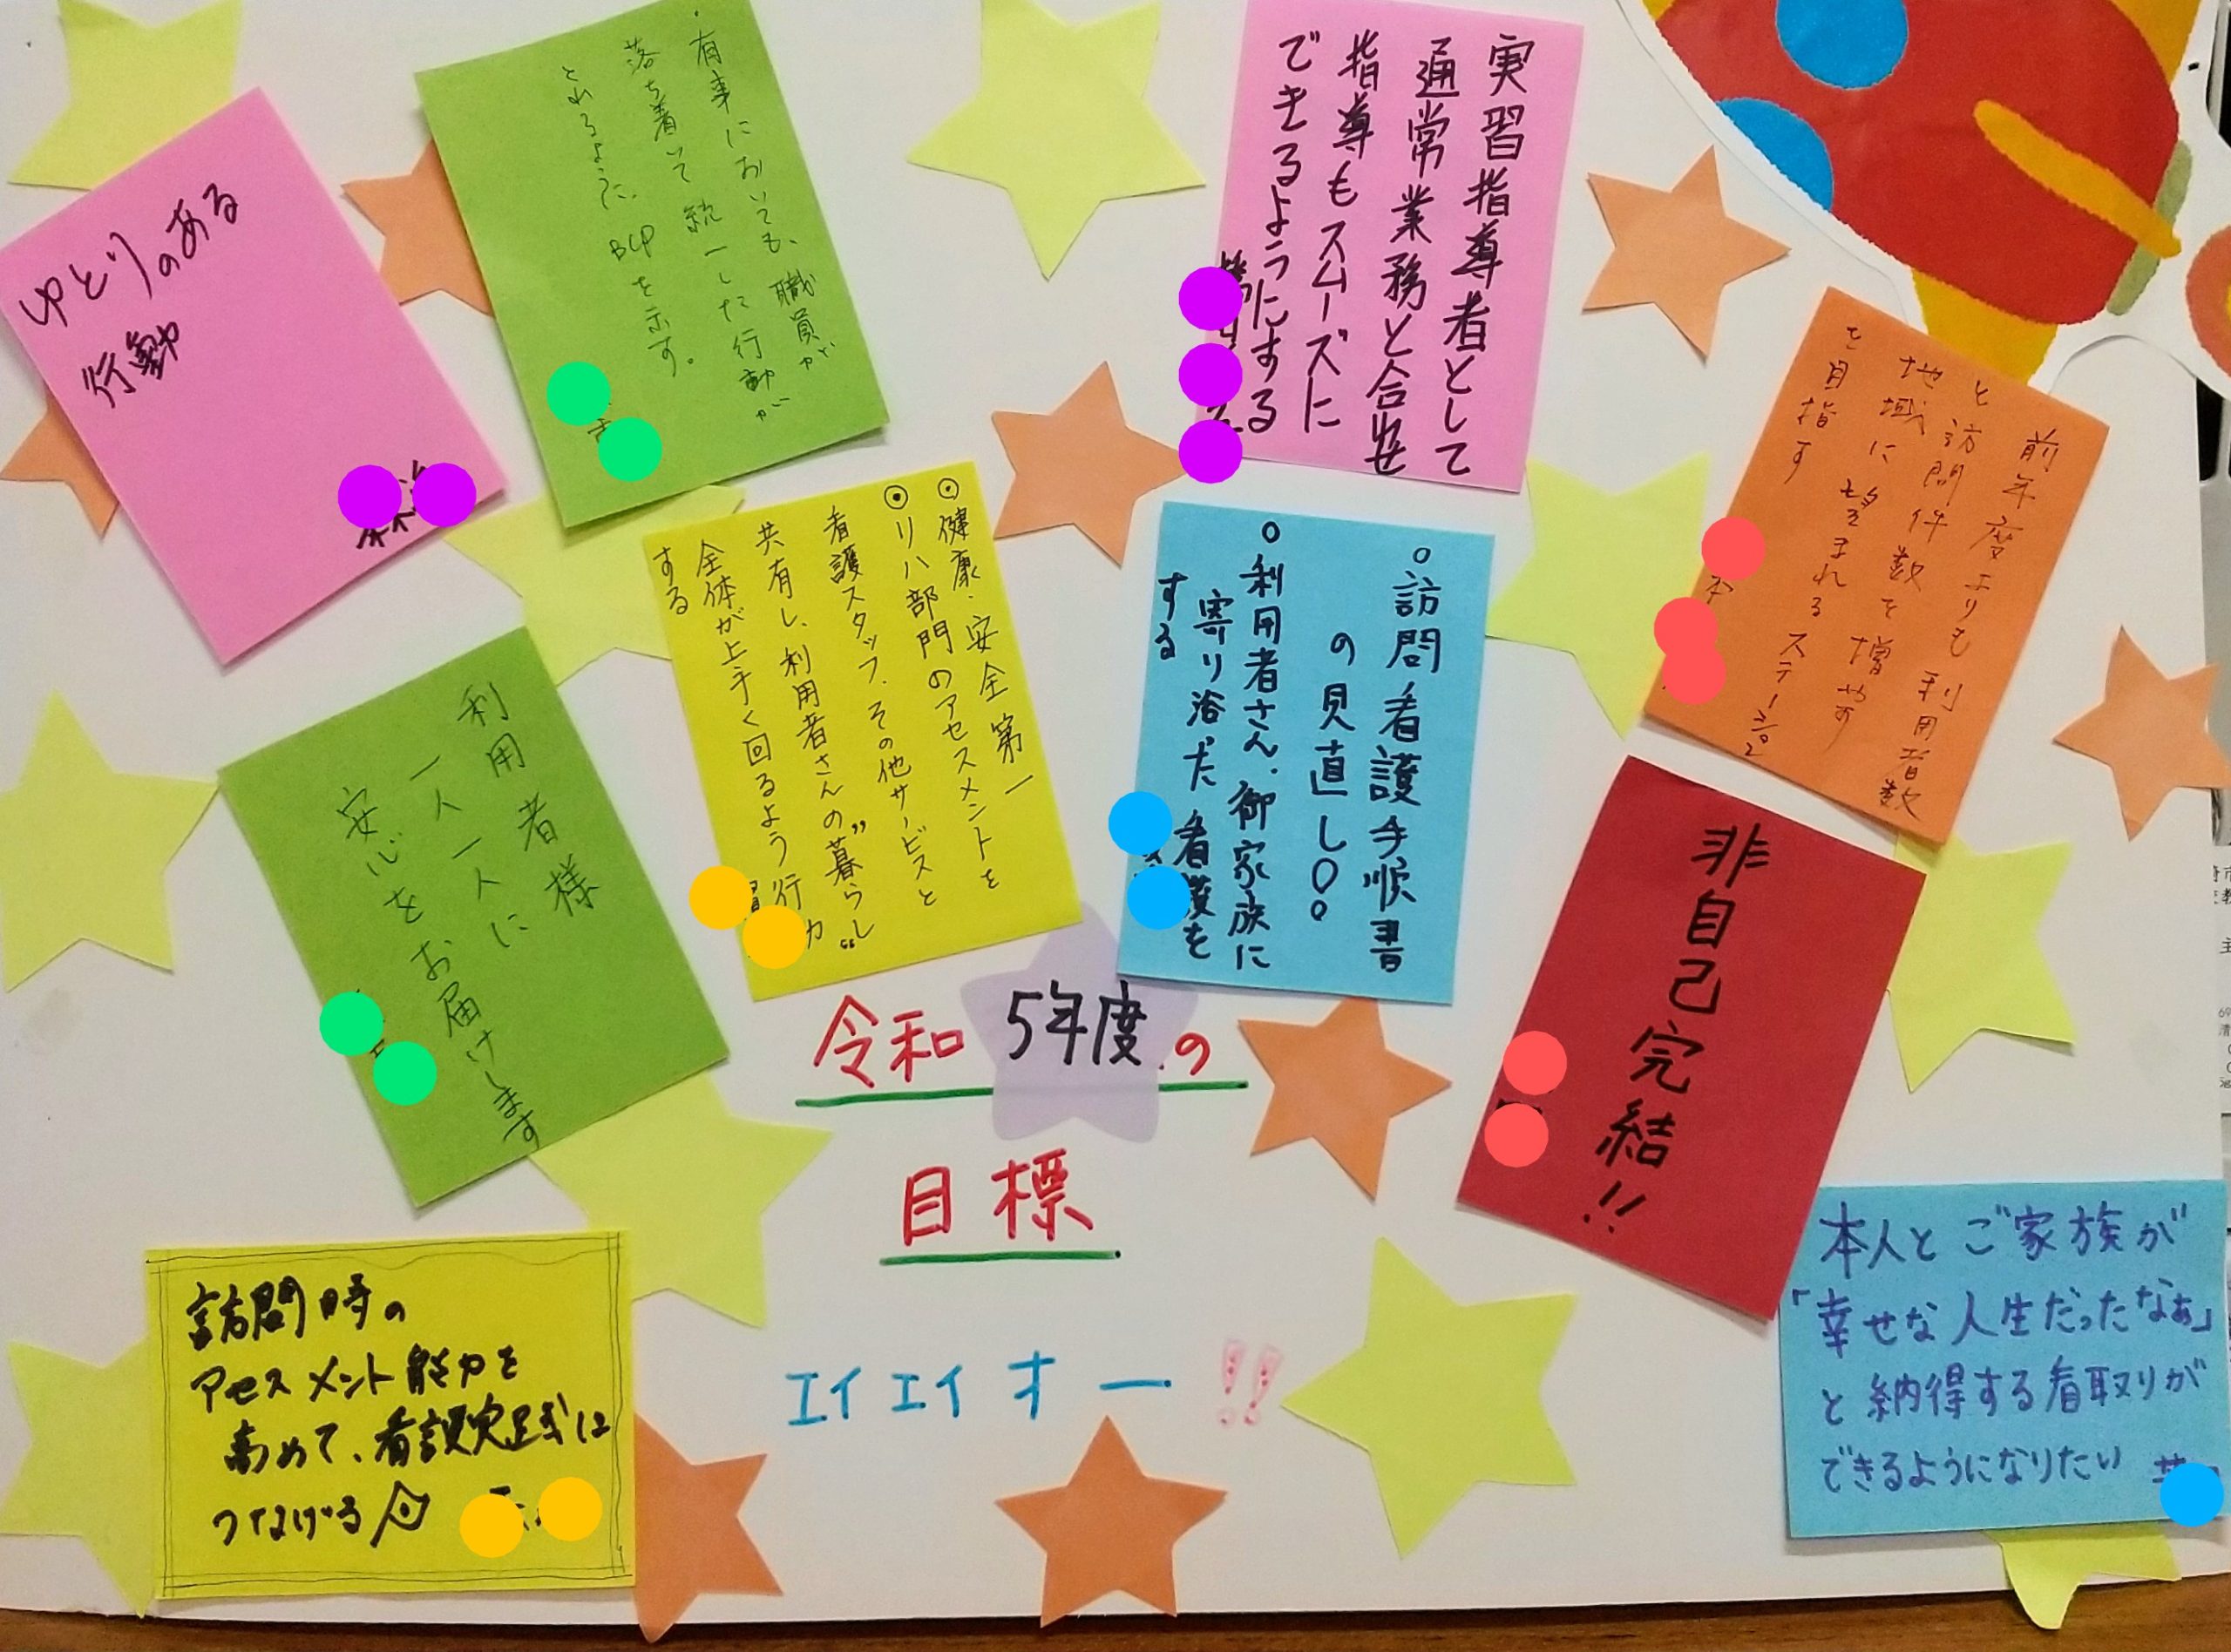 ゆとりのある
行動
有事においても、職員が
落ち着いて統一した行動が
とれるように、BCPを示す。
実習指導者として
通常業務と合せ
指導もスムーズに
できるようにする
前年度よりも利用者数
と訪問件数を増やす
地域に望まれるステーション
を目指す
利用者様
一人一人に
安心をお届けします
◎健康・安全第一
◎リハ部門のアセスメントを
看護スタッフ、その他サービスと
共有し、利用者さんの〝暮らし〟
全体が上手く回るよう行
する
○訪問看護手順書
の見直し○。
○利用者さん、御家族に
寄り浴った看護を
する
非自己完結!!
令和5年度の
目標
エイエイオー!!
訪問時の
アセスメント能力を
高めて、看護実践に
つなげる
本人とご家族が
「幸せな人生だったなぁ」
と納得する看取りが
できるようになりたい